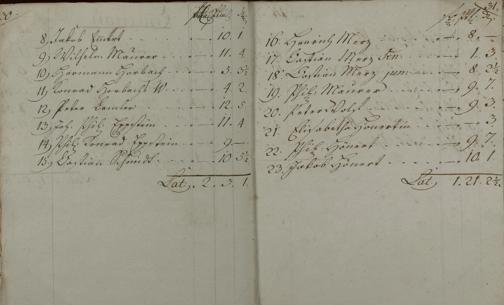 8, Jakob Emert 10. 1
9, Wilhelm Maurer 11. 4
10, Hermann Horbach 3. 5½
11, Conrad Horbach W. 4. 2
12, Peter 12. 5
13, Joh. Phil. Eppstein 11. 4
14, Phil. Conrad Eppstein 9. –
15, Bastian Schmidt 10. 5½
Lat. 2. 3. 1
16. Henrich Merz 8. –
17. Bastian Merz Sen. 1. 3
18. Bastian Merz jun. 8. 2½
19. Phil. Maurer 9. 7
20. Peter 9. 3
21. Elisabetha 3
22. Phil. Hönert 9. 7.
23. Jakob Hönert 10. 1
Lat. 1. 21. 2½